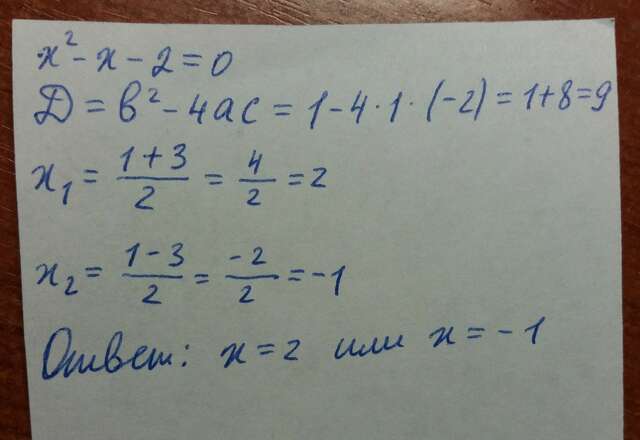 x² - x - 2 = 0
Д = в² - 4ac = 1 - 4 · 1 · (-2) = 1 + 8 = 9
x₁ = (1 + 3)/2 = 4/2 = 2
x₂ = (1 - 3)/2 = -2/2 = -1
Ответ: x = 2 или x = -1